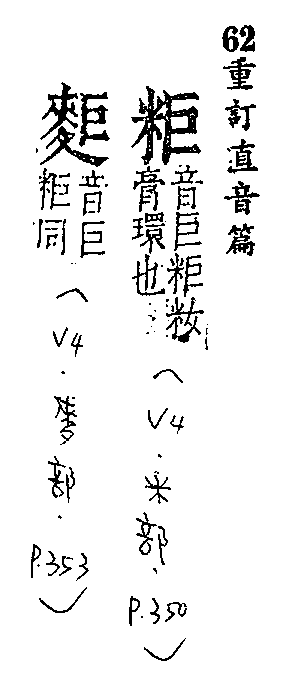 62重訂直音篇
粔
音巨粔籹
膏環也
(V4.米部.P.350)
䴶
音巨
粔同
(V4.麥部.P.353)